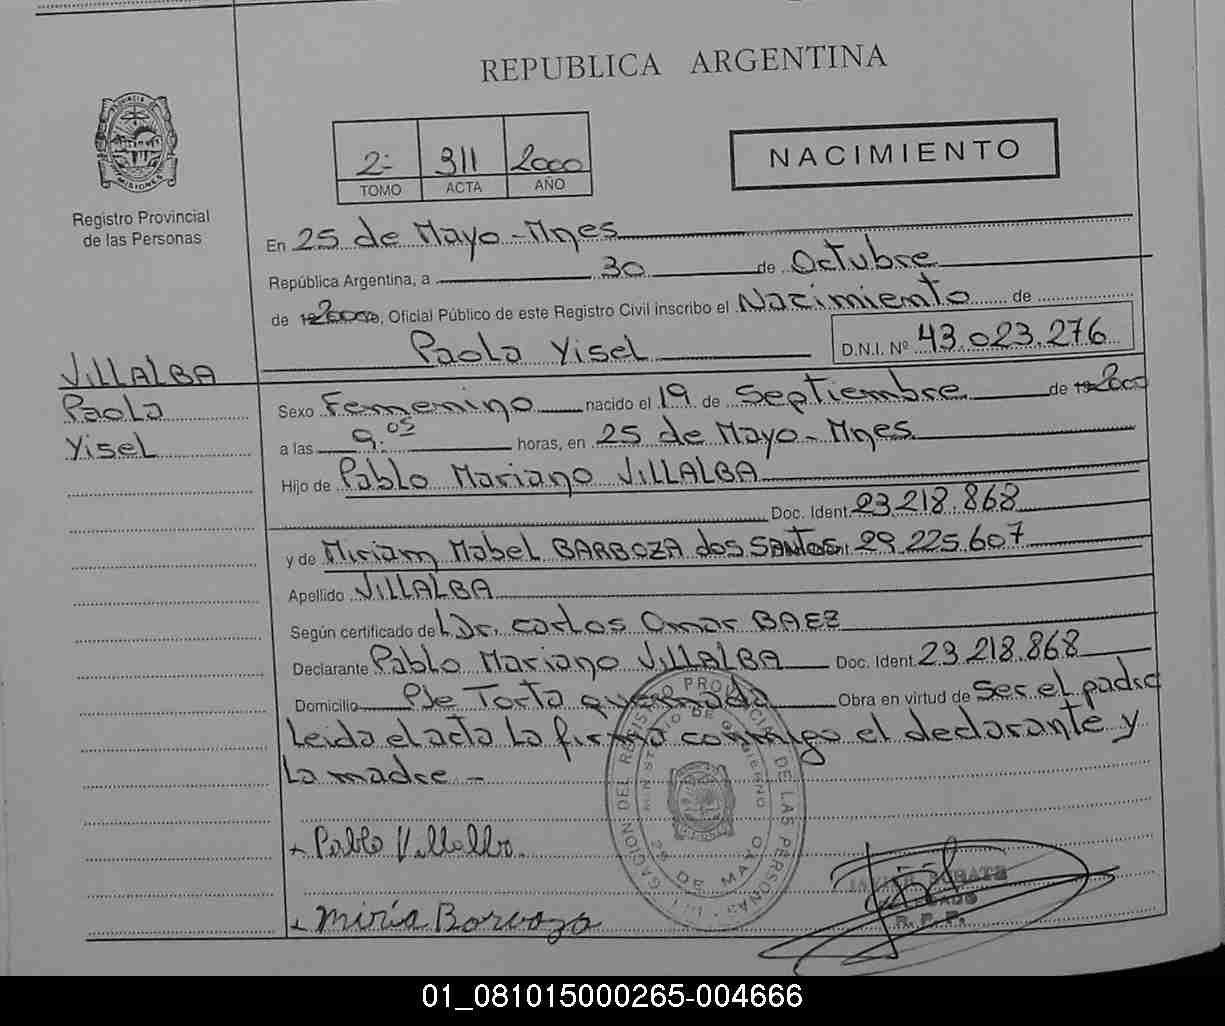 REPUBLICA ARGENTINA
PROVINCIA DE MISIONES
2- 311 2000
TOMO ACTA AÑO
NACIMIENTO
Registro Provincial
de las Personas
En 25 de Mayo - Mnes
República Argentina, a 30 de Octubre
de 2000, Oficial Público de este Registro Civil inscribo el Nacimiento de
Paola Yisel D.N.I. Nº 43.023.276
VILLALBA
Paola
Yisel
Sexo Femenino nacido el 19 de Septiembre de 2000
a las 9:05 horas, en 25 de Mayo - Mnes
Hijo de Pablo Mariano VILLALBA
Doc. Ident. 23.218.868
y de Miriam Mabel BARBOZA dos SANTOS 29.225.607
Apellido VILLALBA
Según certificado del Dr. Carlos Omar BAEZ
Declarante Pablo Mariano VILLALBA Doc. Ident. 23.218.868
Domicilio Pje Torta quemada Obra en virtud de ser el padre
Leida el acta la firma conmigo el declarante y
la madre -
Pablo Villalba
Miria Borvoza
GACION DEL REGISTRO PROVINCIAL DE LAS PERSONAS
MINISTERIO DE GOBIERNO
25 DE MAYO
R. P. P.
01_081015000265-004666